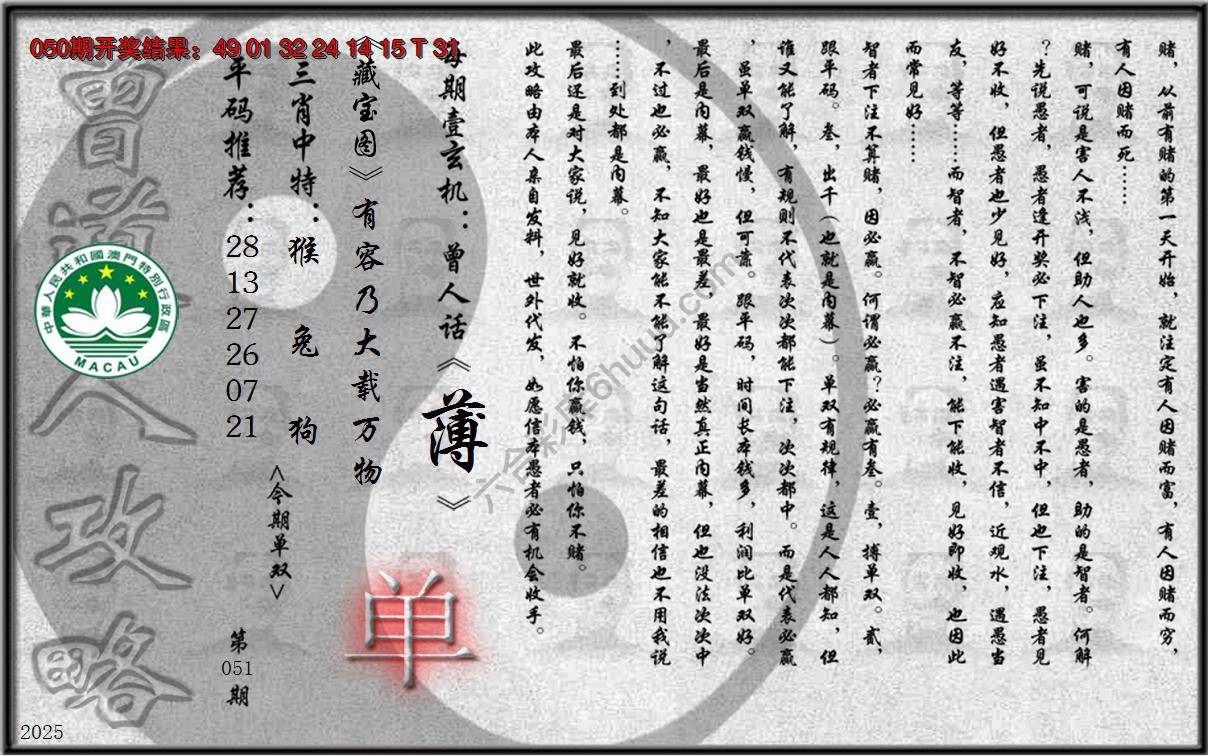 050期开奖结果：49 01 32 24 14 15 T 31
赌，从前有赌的第一天开始，就注定有人因赌而富，有人因赌而穷，
有人因赌而死……
赌，可说是害人不浅，但助人也多。害的是愚者，助的是智者。何解
？先说愚者，愚者逢开奖必下注，虽不知中不中，但也下注，愚者见
好不收，但愚者也少见好，应知愚者遇害智者不信，近观水，遇愚当
友，等等……而智者，不智必赢不注，能下能收，见好即收，也因此
而常见好……
智者下注不算赌，因必赢。何谓必赢？必赢有叁。壹，搏单双。贰，
跟平码。叁，出千（也就是内幕）。单双有规律，这是人人都知，但
谁又能了解，有规则不代表次次都能下注，次次都中。而是代表必赢
，虽单双赢钱慢，但可靠。跟平码，时间长本钱多，利润比单双好。
最后是内幕，最好也是最差，最好是当然真正内幕，但也没法次次中
，不过也必赢，不知大家能不能了解这句话，最差的相信也不用我说
……到处都是内幕。
最后还是对大家说，见好就收。不怕你赢钱，只怕你不赌。
此攻略由本人亲自发料，世外代发，如愿信本愚者必有机会收手。
每期壹玄机：曾人话《薄》
《藏宝图》有容乃大载万物
三肖中特：猴 兔 狗
<今期单双>
单
平码推荐：28 13 27 26 07 21
第051期
曾道人攻略
中華人民共和國澳門特別行政區
MACAU
2025